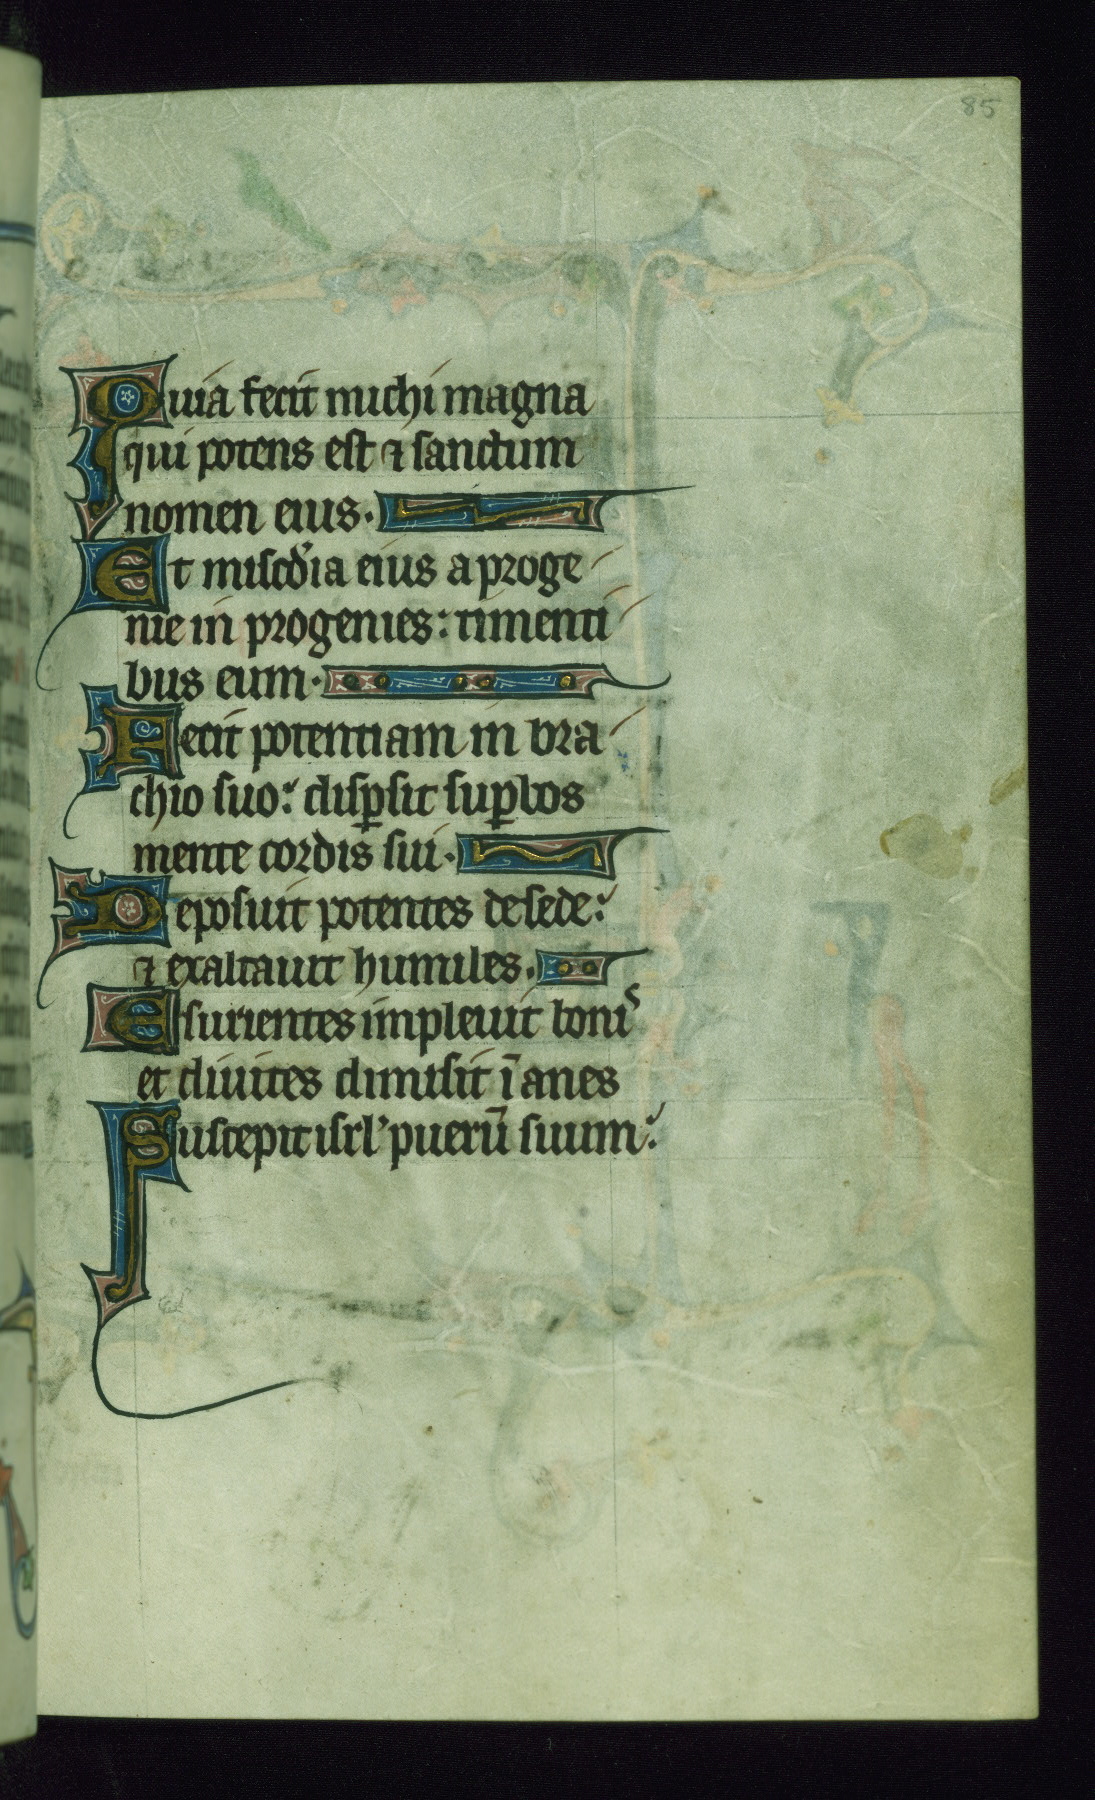 85
Quia fecit michi magna
qui potens est ⁊ sanctum
nomen eius.
Et misc̃dia eius a proge
nie in progenies: timenti
bus eum.
Fecit potentiam in bra
chio suo: disꝑsit suꝑbos
mente cordis sui.
Deposuit potentes de sede:
⁊ exaltauit humiles.
Esurientes impleuit bonis
et diuites dimisit īanes
Suscepit isrl' puerū suum: